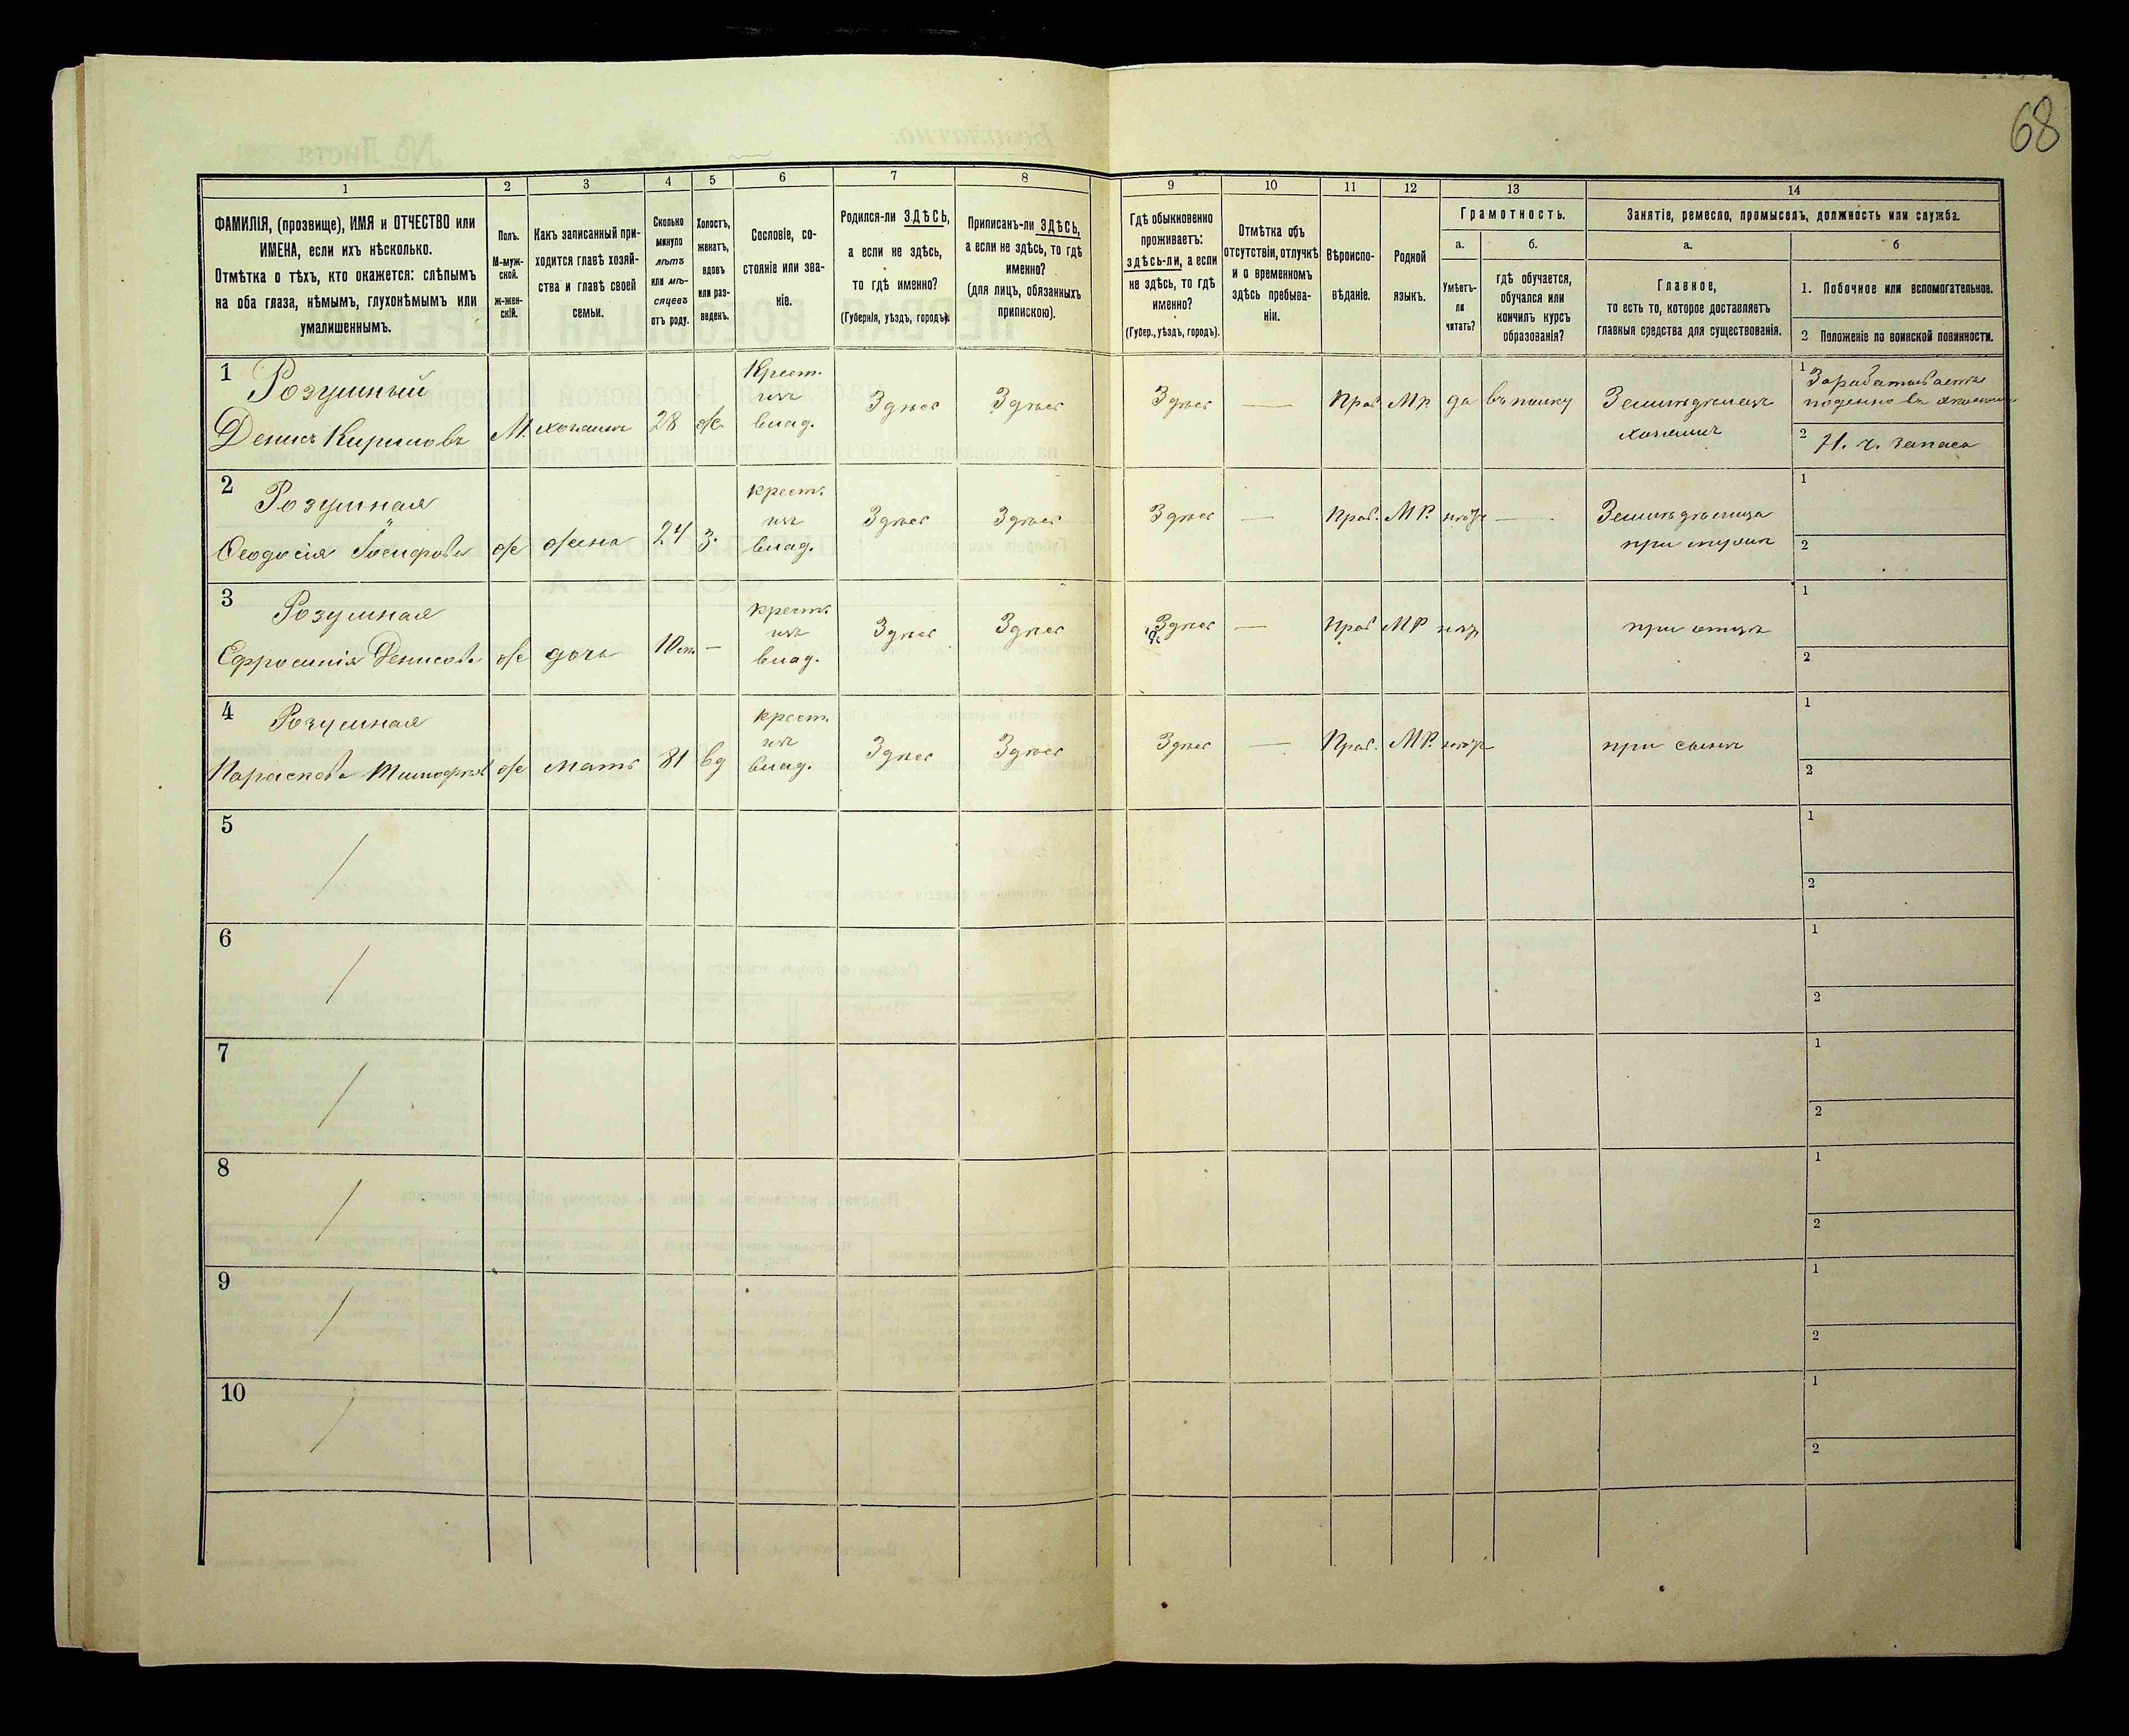 68
1
2
3
4
5
6
7
8
9
10
11
12
13
14
ФАМИЛІЯ, (прозвище), ИМЯ и ОТЧЕСТВО или
ИМЕНА, если ихъ нѣсколько.
Отмѣтка о тѣхъ, кто окажется: слѣпымъ
на оба глаза, нѣмымъ, глухонѣмымъ или
умалишеннымъ.
Полъ.
М-муж-
ской.
Ж-жен-
скій.
Какъ записанный при-
ходится главѣ хозяй-
ства и главѣ своей
семьи.
Сколько
минуло
лѣтъ
или мѣ-
сяцевъ
отъ роду.
Холостъ,
женатъ,
вдовъ
или раз-
веденъ.
Сословіе, со-
стояніе или зва-
ніе.
Родился-ли ЗДѢСЬ,
а если не здѣсь,
то гдѣ именно?
(Губернія, уѣздъ, городъ).
Приписанъ-ли ЗДѢСЬ,
а если не здѣсь, то гдѣ
именно?
(для лицъ, обязанныхъ
припискою).
Гдѣ обыкновенно
проживаетъ:
здѣсь-ли, а если
не здѣсь, то гдѣ
именно?
(Губер., уѣздъ, городъ).
Отмѣтка объ
отсутствіи, отлучкѣ
и о временномъ
здѣсь пребыва-
ніи.
Вѣроиспо-
вѣданіе.
Родной
языкъ.
Грамотность.
а.
Умѣетъ-
ли
читать?
б.
гдѣ обучается,
обучался или
кончилъ курсъ
образованія?
Занятіе, ремесло, промыселъ, должность или служба.
а.
Главное,
то есть то, которое доставляетъ
главныя средства для существованія.
б
1. Побочное или вспомогательное.
2 Положеніе по воинской повинности.
1 Розумный
Денисъ Кириловъ
М.
хозяинъ
28
ж.
Крест.
изъ
влад.
Здѣсь
Здѣсь
Здѣсь
—
Прав
Мр.
да
въ полку
Земледѣлецъ
хозяинъ
1 Зарабатываетъ
поденно въ
2 Н. ч. запаса
2 Розумная
Ѳеодосія Іосифова
ж
жена
24
з.
крест.
изъ
влад.
Здѣсь
Здѣсь
Здѣсь
—
Прав.
МР.
нѣтъ
—
Земледѣлица
при мужѣ
1
2
3 Розумная
Ефросинія Денисова
ж
дочь
10 м.
—
крест.
изъ
влад.
Здѣсь
Здѣсь
Здѣсь
—
Прав
МР
нѣтъ
при отцѣ
1
2
4 Розумная
Параскова Тимофеева
ж
мать
81
вд
крест.
изъ
влад.
Здѣсь
Здѣсь
Здѣсь
—
Прав.
МР.
нѣтъ
при сынѣ
1
2
5
1
2
6
1
2
7
1
2
8
1
2
9
1
2
10
1
2